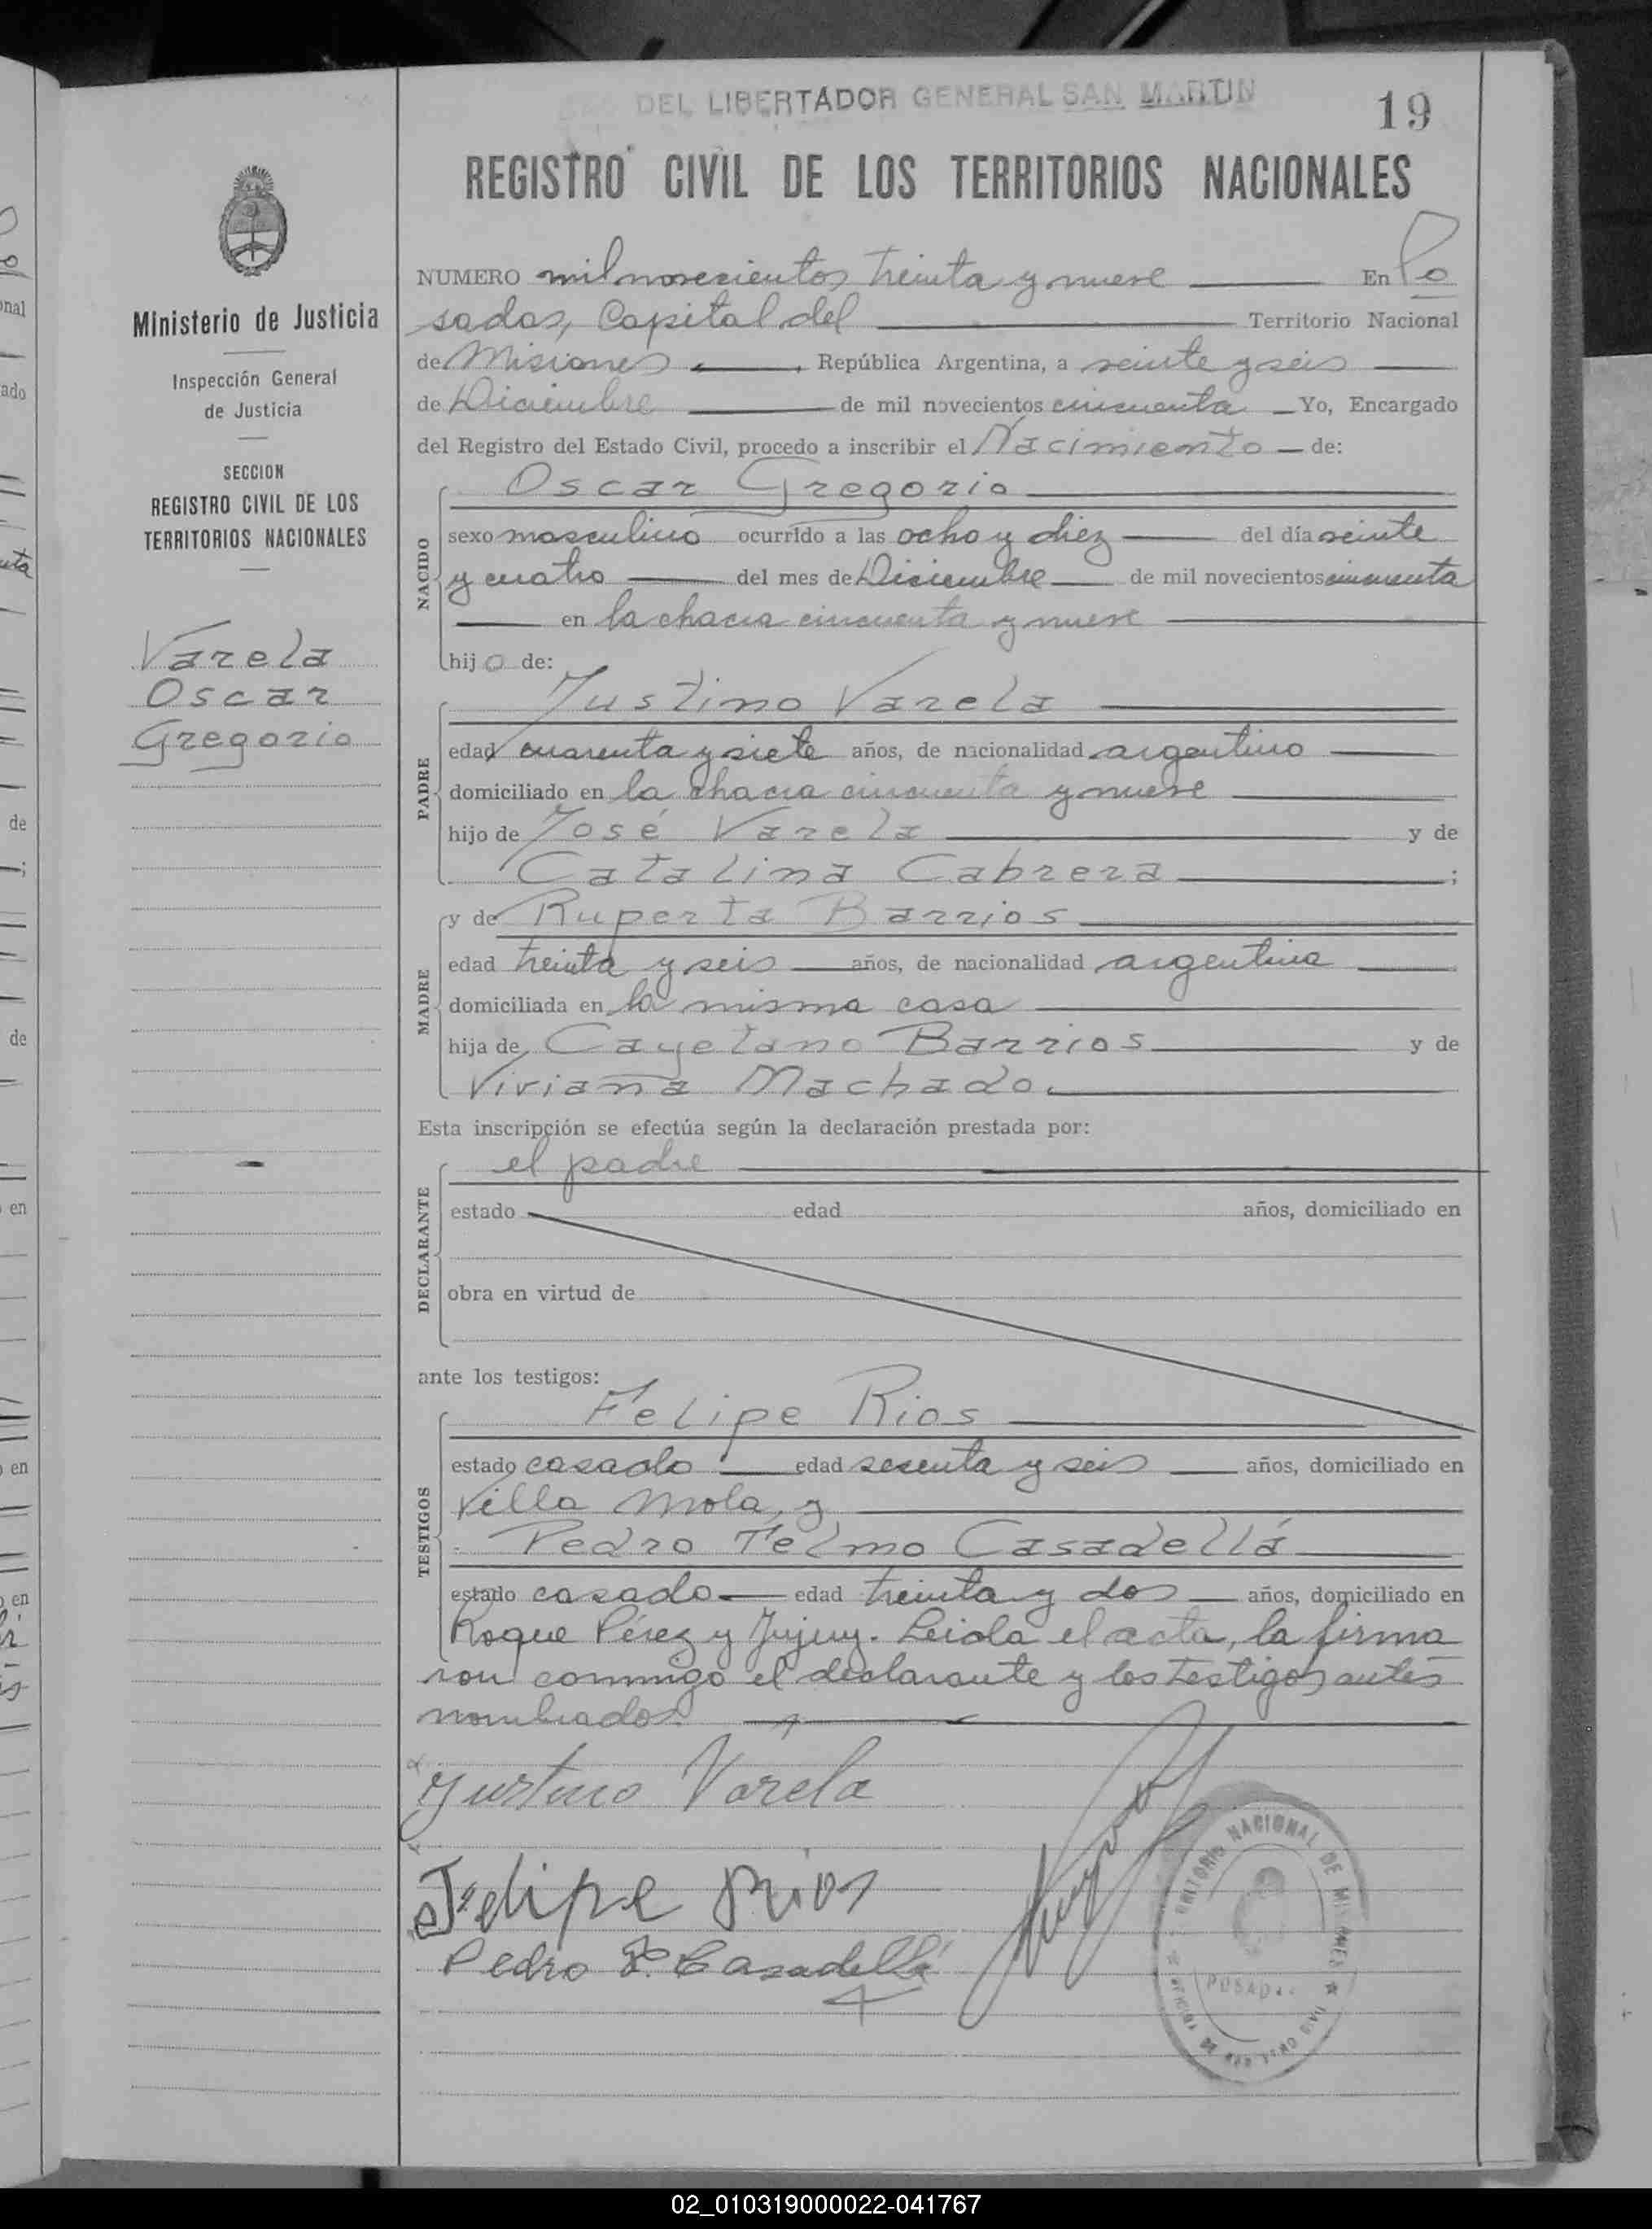 DEL LIBERTADOR GENERAL SAN MARTIN
19
REGISTRO CIVIL DE LOS TERRITORIOS NACIONALES
Ministerio de Justicia
Inspección General
de Justicia
SECCION
REGISTRO CIVIL DE LOS
TERRITORIOS NACIONALES
Varela
Oscar
Gregorio
NUMERO mil novecientos treinta y nueve En Po
sadas, Capital del Territorio Nacional
de Misiones, República Argentina, a veinte y seis
de Diciembre de mil novecientos cincuenta Yo, Encargado
del Registro del Estado Civil, procedo a inscribir el Nacimiento de:
NACIDO
Oscar Gregorio
sexo masculino ocurrido a las ocho y diez del día veinte
y cuatro del mes de Diciembre de mil novecientos cincuenta
en la chacra cincuenta y nueve
hijo de:
PADRE
Justino Varela
edad cuarenta y siete años, de nacionalidad argentino
domiciliado en la chacra cincuenta y nueve
hijo de José Varela y de
Catalina Cabrera ;
MADRE
y de Ruperta Barrios
edad treinta y seis años, de nacionalidad argentina
domiciliada en la misma casa
hija de Cayetano Barrios y de
Viviana Machado.
Esta inscripción se efectúa según la declaración prestada por:
DECLARANTE
el padre
estado edad años, domiciliado en
obra en virtud de
ante los testigos:
TESTIGOS
Felipe Rios
estado casado edad sesenta y seis años, domiciliado en
Villa Mola, y
Pedro Telmo Casadellá
estado casado edad treinta y dos años, domiciliado en
Roque Pérez y Jujuy. Leida el acta, la firma
ron conmigo el declarante y los testigos antes
nombrados.
Justino Varela
Felipe Rios
Pedro T. Casadellá
NACIONAL DE MISIONES
POSADAS
02_010319000022-041767